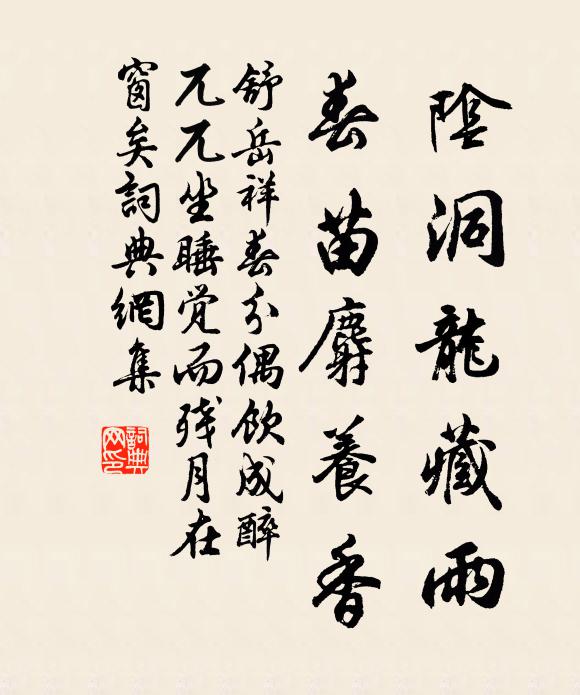 陰洞龍藏雨
春苗麝養香
舒岳祥春分偶飲成醉
兀兀坐睡觉而残月在
窗矣詞典網集
詞典
网印